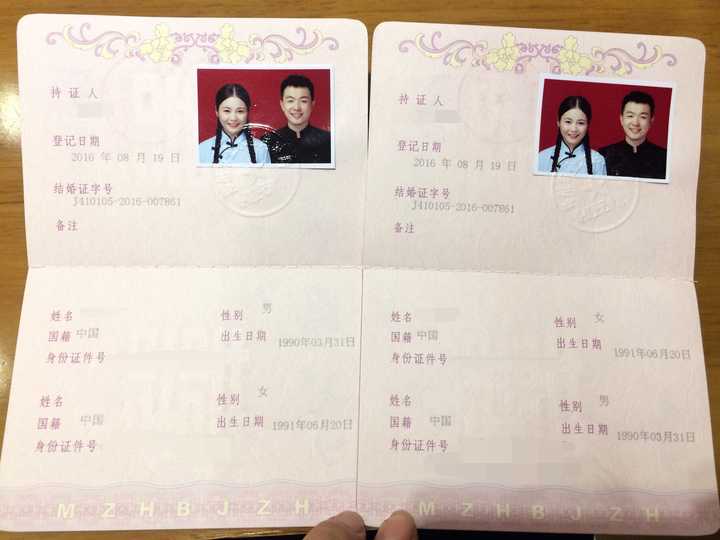 持证人
登记日期
2016 年 08 月 19 日
结婚证字号
J410105-2016-007861
备注
姓名 性别 男
国籍 中国 出生日期 1990年03月31日
身份证件号
姓名 性别 女
国籍 中国 出生日期 1991年06月20日
身份证件号
MZHBJZH
持证人
登记日期
2016 年 08 月 19 日
结婚证字号
J410105-2016-007861
备注
姓名 性别 女
国籍 中国 出生日期 1991年06月20日
身份证件号
姓名 性别 男
国籍 中国 出生日期 1990年03月31日
身份证件号
MZHBJZH